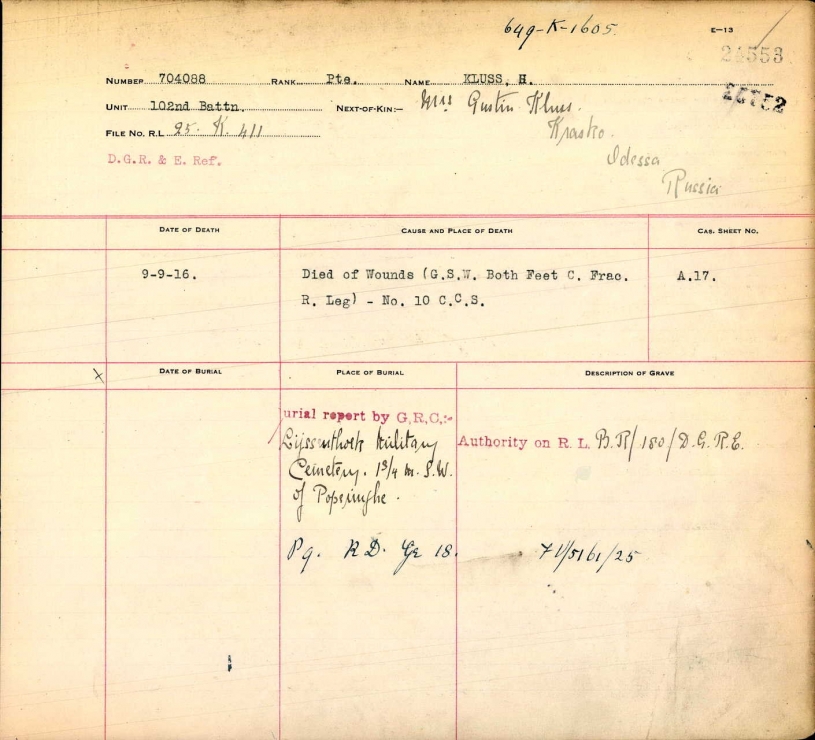 649-K-1605.
E-13
24553
NUMBER 704088 RANK Pte. NAME KLUSS, H.
UNIT 102nd Battn. NEXT-OF-KIN:- Mrs Gustin Kluss.
Krasko.
FILE NO. R.L. 25. K. 411
Odessa
D.G.R. & E. Ref.
Russia
DATE OF DEATH CAUSE AND PLACE OF DEATH CAS. SHEET NO.
9-9-16. Died of Wounds (G.S.W. Both Feet C. Frac. A.17.
R. Leg) - No. 10 C.C.S.
x DATE OF BURIAL PLACE OF BURIAL DESCRIPTION OF GRAVE
urial report by G.R.C.:-
Lijssenthoek Military Authority on R. L. B.R/180/D.G.R.E.
Cemetery. 1 3/4 m. S.W.
of Poperinghe.
Pq. R D. Gr 18. 71/5161/25